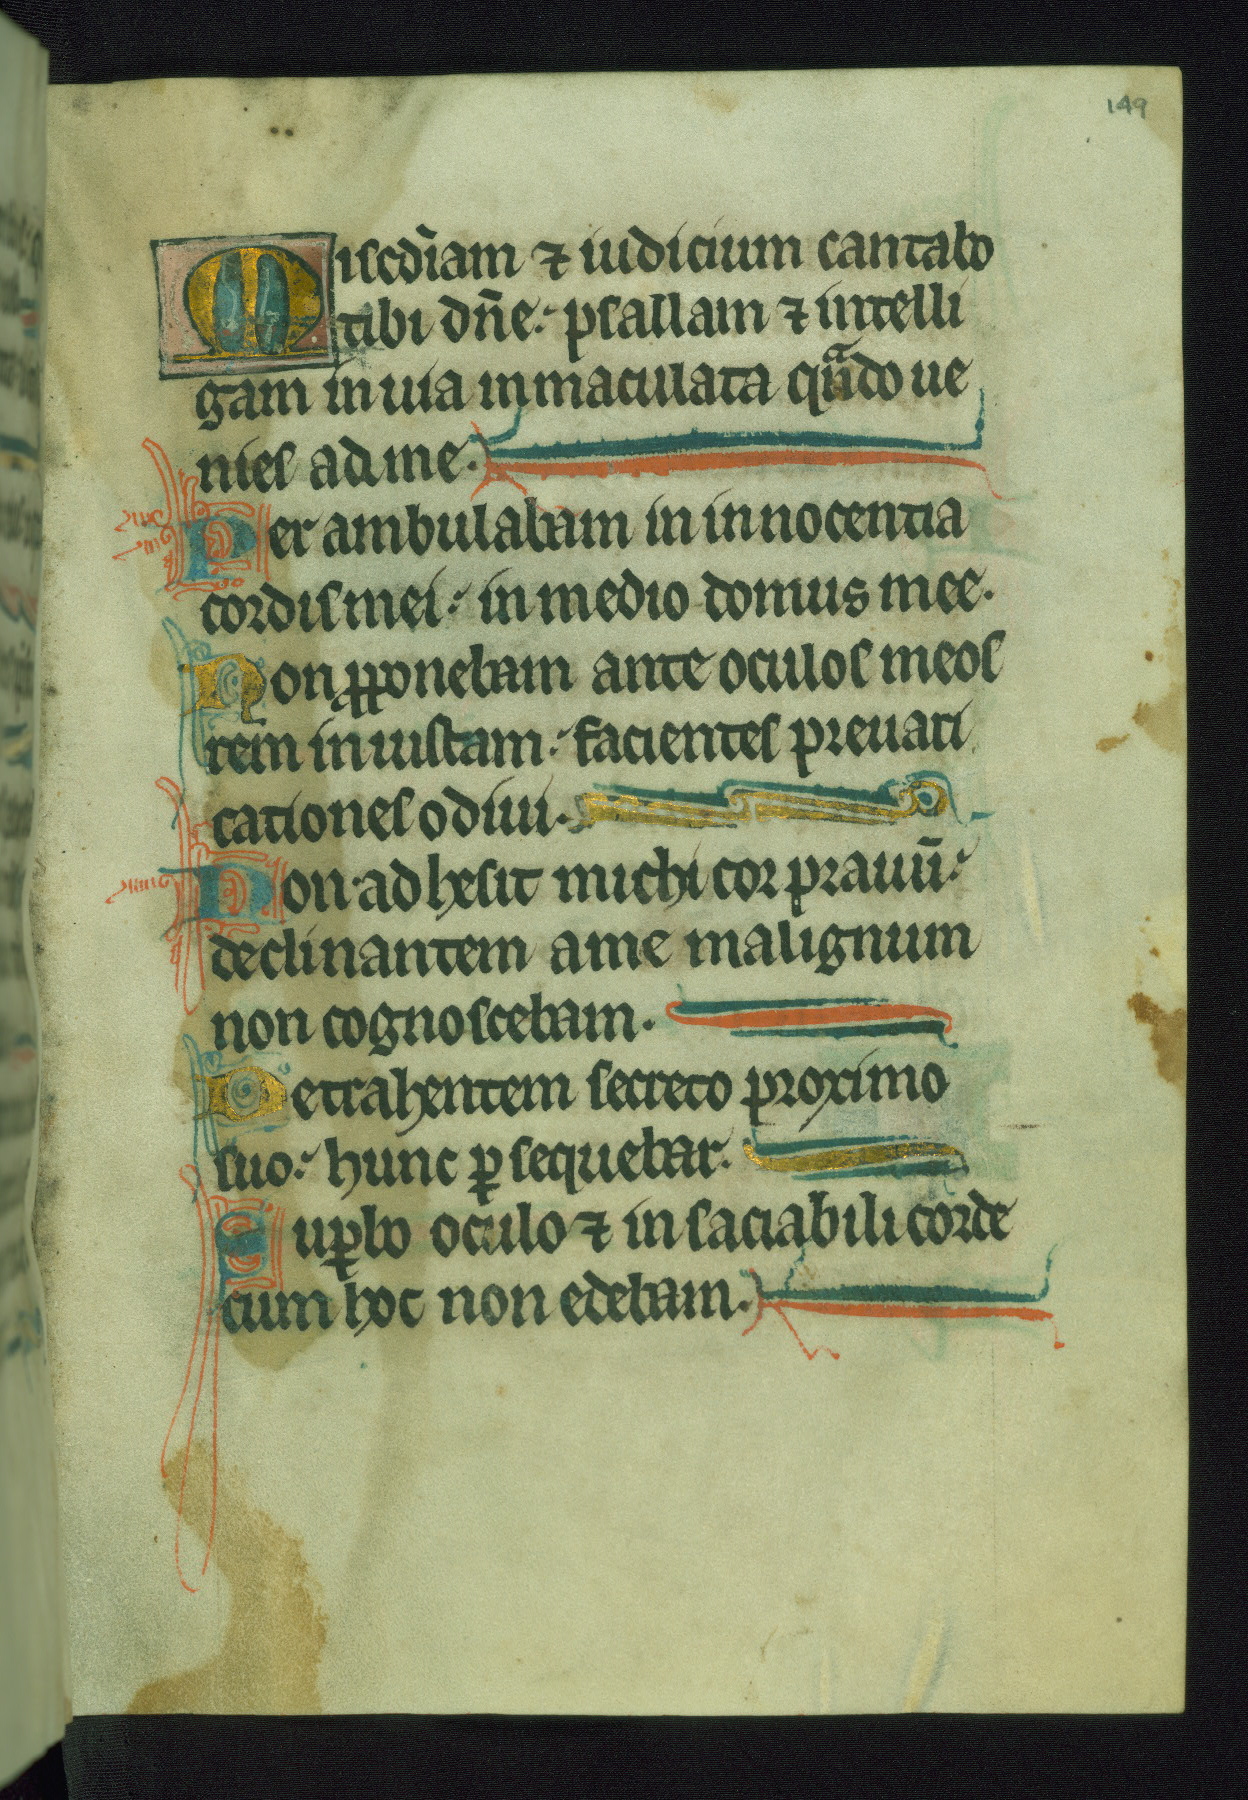 149
Miscd̄iam ⁊ iudicium cantabo
tibi dn̄e: psallam ⁊ intelli
gam in uia inmaculata qn̄do ue
nies ad me.
Per ambulabam in innocentia
cordis mei: in medio domus mee.
Non ꝓponebam ante oculos meos
rem iniustam: facientes preuari
cationes odiui.
Non adhesit michi cor prauū:
declinantem a me malignum
non cognoscebam.
Detrahentem secreto proximo
suo: hunc ꝑsequebar.
Suꝑbo oculo ⁊ insaciabili corde
cum hoc non edebam.